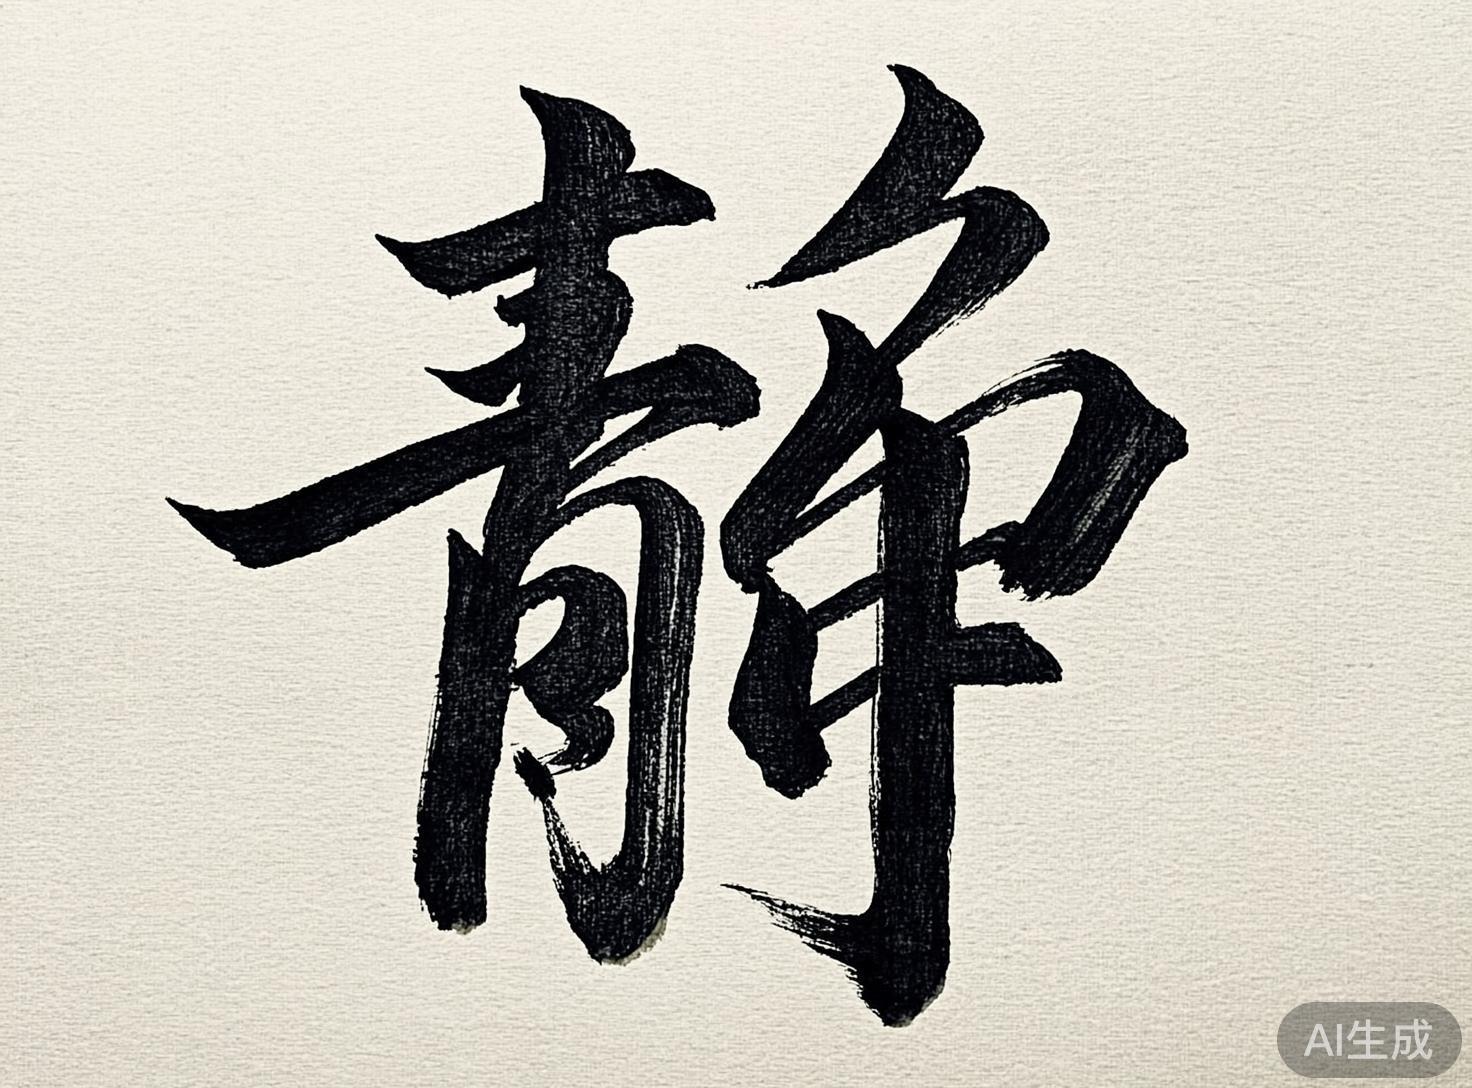 静
AI生成